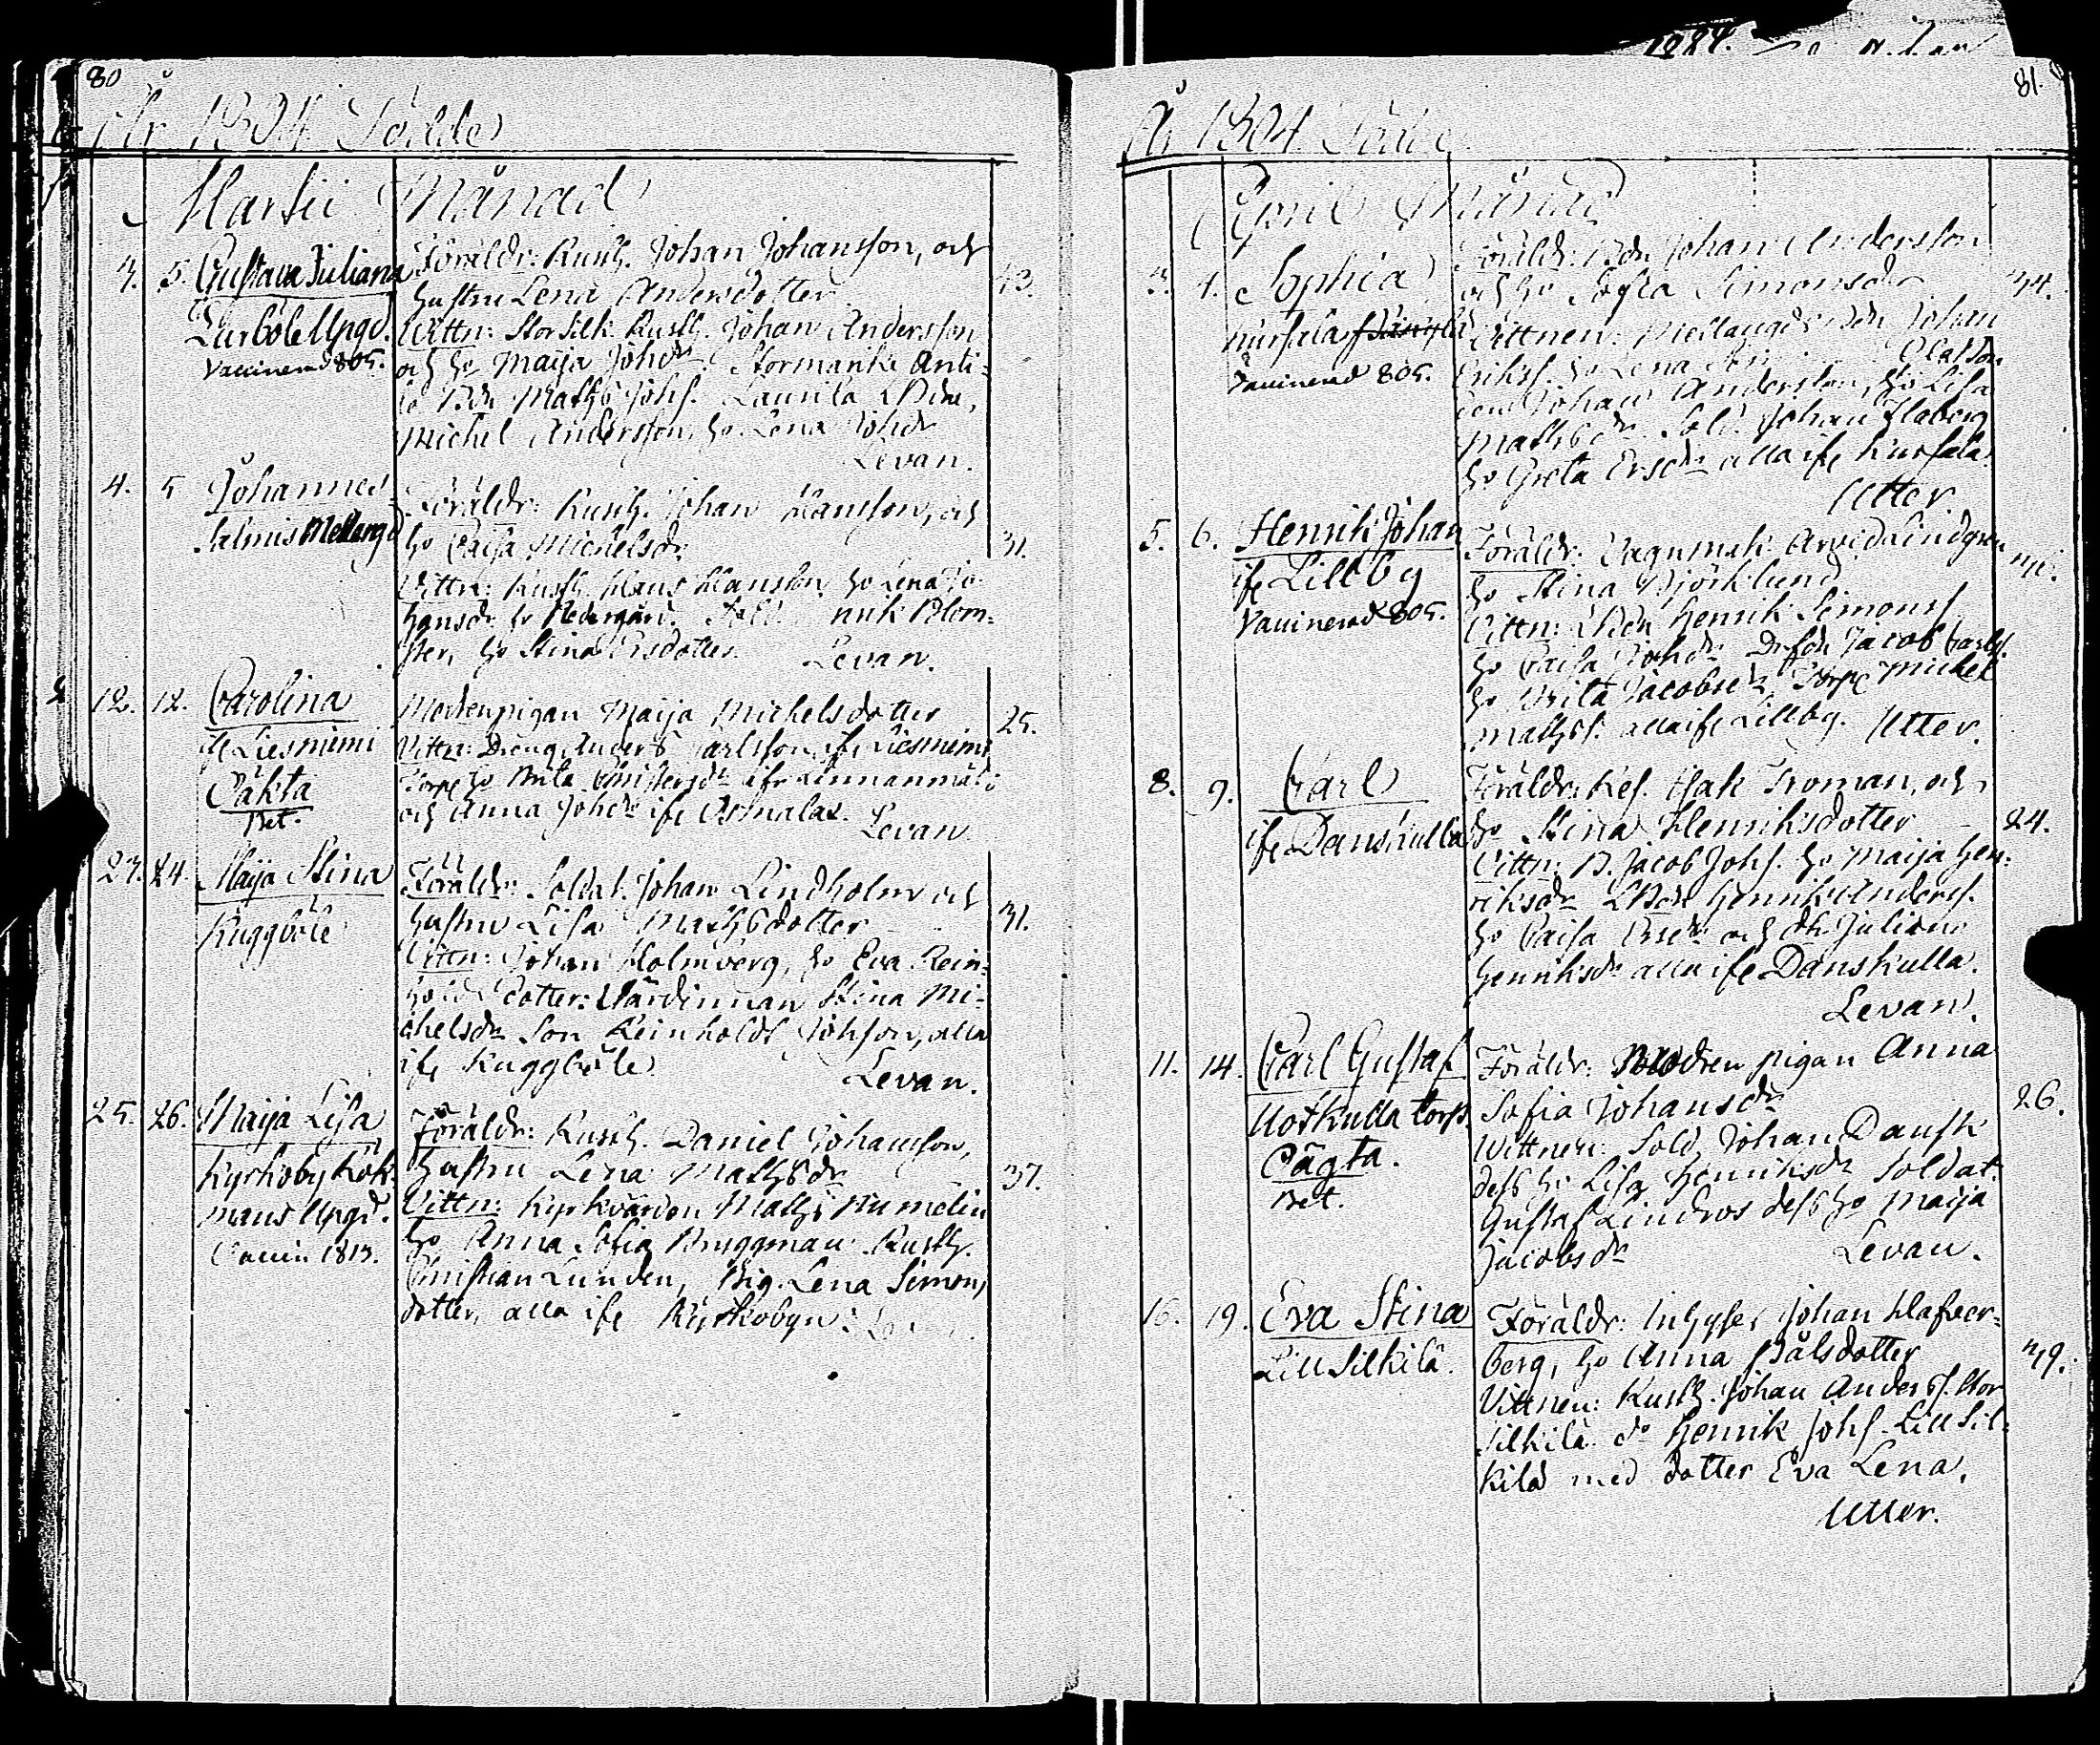 80
År 1804 Födde
Martii Månad
3. 5. Gustava Juliana
Purböle Uppgd.
Vaccinerad 805.
Föräldr: Rusth. Johan Johansson, och
hustru Lena Andersdotter
43.
Vittn: Storsilk. Rusth. Johan Andersson
och ho Maija Johdr. Stormanki Anti-
la Bdn Matths Johs. Laurila LBdn,
Michel Andersson, ho Lena Johdr
Levan.
4. 5 Johannes
Salmis Mellangd
Föräldr: Rusth. Johan Hansson, och
ho Caisa Michelsdr
31.
Vittn: Rusth. Hans Hansson ho Lena Jo-
hansdr fr Nedergård. Sold. Blom-
ster, ho Stina Ersdotter. Levan.
12. 12. Carolina
ifr Liesniemi
Oäkta
Bet.
Mödrenpigan Maija Michelsdotter
25.
Vittn: Dreng Anders Carlsson ifr Liesniemi
Torpe ho Brita Christersdr ifr Linnanmäki
och Anna Johdr ifr Osmalax. Levan
23. 24. Maija Stina
Kuggböle
Föräldr: Soldat. Johan Lindholm och
hustru Lisa Matthsdotter
31.
Vittn: Johan Holmberg, ho Eva Rein-
holds dotter: Värdinnan Stina Mi-
chelsdr Son Reinholdt Johson, alla
ifr Kuggböle
Levan.
25. 26. Maija Lisa
Kyrkoby Kök-
mans Uppgd.
Vaccin 1813.
Föräldr: Rusth. Daniel Johansson,
hustru Lena Matthsdr
37.
Vittn: Kyrkvärden Matths Numelin
ho Anna Sofia Bruggman. Rusth.
Christian Lunden, Pig. Lena Simons
dotter, alla ifr Kyrkobyn:
81.
År 1804 Födde
April Månad
3. 4. Sophia
Kursala
Vaccinerad 805.
Föräldr: Bdn Johan Andersson
och ho Sofia Simonsdr
34.
Vittnen: Mellangds Bdn Johan
Erikss. ho Lena
Johan Andersson, ho Lisa
Matthsdr. Sold. Johan Flaberg
ho Greta Ersdr alla ifr Kursala.
Utter
5. 6. Henrik Johan
ifr Lillby
Vaccinerad 805.
Föräldr: Vagnmak. Arvid Lindgren
ho Stina Björklund
Vittn: LBdn Henrik Simonss.
ho Caisa Johdr. Jacob Carls.
ho Brita Jacobsdr, Torpe Michel
Matthss. alla ifr Lillby. Utter.
8. 9. Carl
ifr Danskulla
Föräldr: Res. Isak Froman, och
ho Stina Henriksdotter
24.
Vittn: B. Jacob Johs. ho Maija Hen-
riksdr LBdn Henrik Anders.
ho Caisa Ersdr och dr. Juliana
Henriksdr alla ifr Danskulla.
Levan.
11. 14. Carl Gustaf
Uotkulla torp.
Oägta.
Bet.
Föräldr: Modren pigan Anna
Sofia Johansdr
26.
Wittnen: Sold. Johan Dansk
dess ho Lisa Henriksdr Soldat.
Gustaf Lindros dess ho Maija
Jacobsdr
Levan.
16. 19. Eva Stina
Lill Silkilä.
Föräldr: Inhyses Johan Hafver-
berg, ho Anna Pålsdotter
39.
Vittnen: Rusth. Johan Anderss. Stor
Silkilä do Henrik Johs. Lill Sil-
kilä med dotter Eva Lena.
Utter.